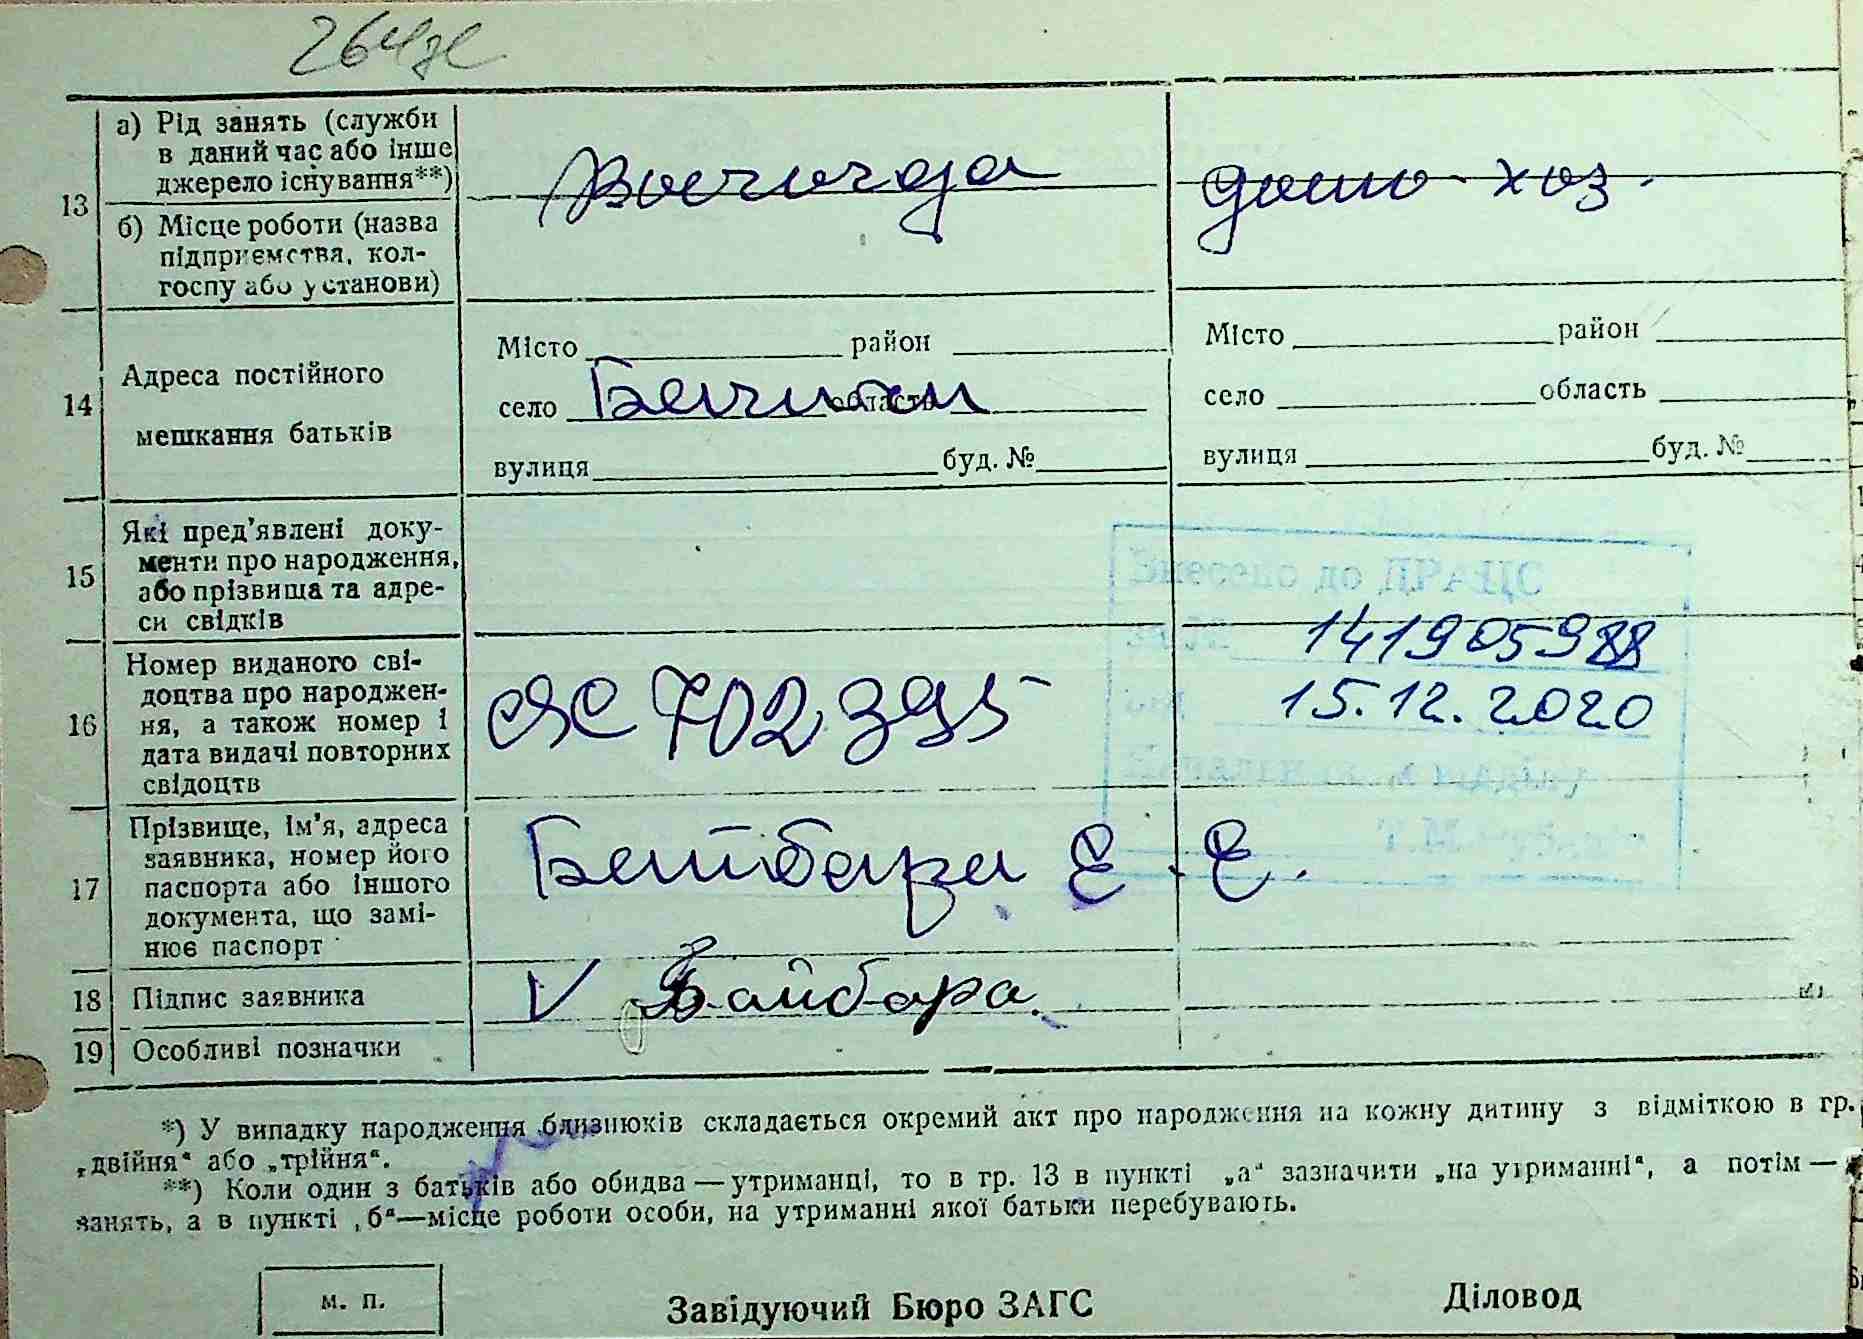 264
13
а) Рід занять (служби
в даний час або інше
джерело існування**)
домо-хоз.
б) Місце роботи (назва
підприємства, кол-
госпу або установи)
14
Адреса постійного
мешкання батьків
Місто район
село область
вулиця буд. №
Місто район
село область
вулиця буд. №
15
Які пред'явлені доку-
менти про народження,
або прізвища та адре-
си свідків
Внесено до ДРАЦС
за № 141905988
16
Номер виданого сві-
доцтва про народжен-
ня, а також номер і
дата видачі повторних
свідоцтв
ЯС 702395
15.12.2020
17
Прізвище, ім'я, адреса
заявника, номер його
паспорта або іншого
документа, що замі-
нює паспорт
Байбара Е. Е.
18
Підпис заявника
V Байбара
19
Особливі позначки
*) У випадку народження близнюків складається окремий акт про народження на кожну дитину з відміткою в гр.
„двійня“ або „трійня“.
**) Коли один з батьків або обидва — утриманці, то в гр. 13 в пункті „а“ зазначити „на утриманні“, а потім —
занять, а в пункті „б“—місце роботи особи, на утриманні якої батьки перебувають.
м. п.
Завідуючий Бюро ЗАГС
Діловод